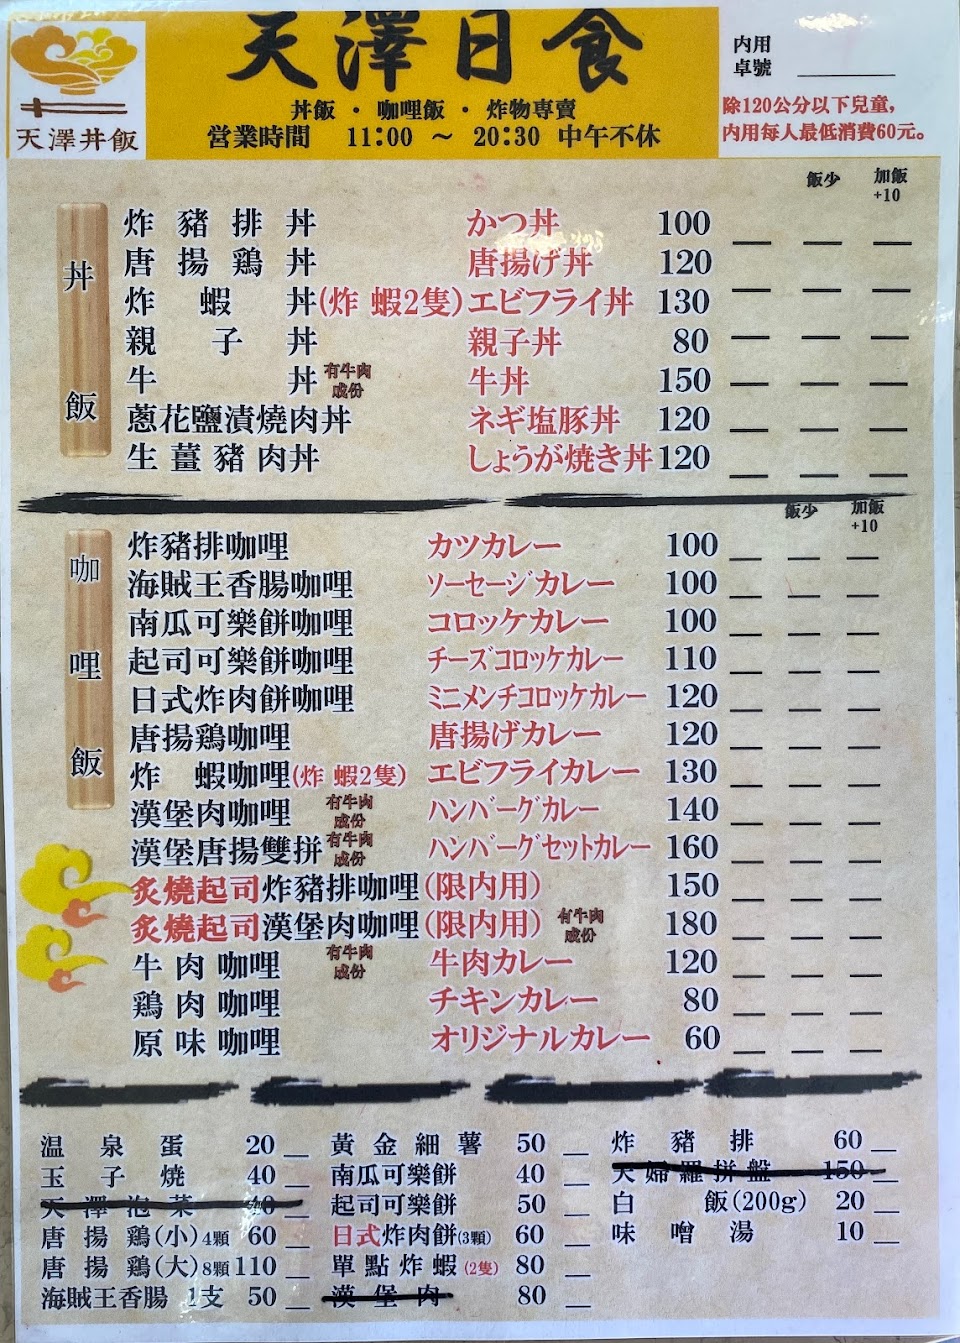 天澤日食
丼飯 · 咖哩飯 · 炸物専賣
営業時間 11:00 ～ 20:30 中午不休
天澤丼飯
内用
卓號
除120公分以下兒童,
内用每人最低消費60元。
飯少 加飯+10
丼飯
炸豬排丼 かつ丼 100
唐揚鶏丼 唐揚げ丼 120
炸蝦丼(炸 蝦2隻) エビフライ丼 130
親子丼 親子丼 80
牛丼 有牛肉成份 牛丼 150
蔥花鹽漬燒肉丼 ネギ塩豚丼 120
生薑豬肉丼 しょうが焼き丼 120
飯少 加飯+10
咖哩飯
炸豬排咖哩 カツカレー 100
海賊王香腸咖哩 ソーセージカレー 100
南瓜可樂餅咖哩 コロッケカレー 100
起司可樂餅咖哩 チーズコロッケカレー 110
日式炸肉餅咖哩 ミニメンチコロッケカレー 120
唐揚鶏咖哩 唐揚げカレー 120
炸 蝦咖哩(炸 蝦2隻) エビフライカレー 130
漢堡肉咖哩 有牛肉成份 ハンバーグカレー 140
漢堡唐揚雙拼 有牛肉成份 ハンバーグセットカレー 160
炙燒起司炸豬排咖哩(限内用) 150
炙燒起司漢堡肉咖哩(限内用) 有牛肉成份 180
牛肉咖哩 有牛肉成份 牛肉カレー 120
鶏肉咖哩 チキンカレー 80
原味咖哩 オリジナルカレー 60
温泉蛋 20
玉子燒 40
天澤泡菜 40
唐揚鶏(小)4顆 60
唐揚鶏(大)8顆 110
海賊王香腸 1支 50
黃金細薯 50
南瓜可樂餅 40
起司可樂餅 50
日式炸肉餅(3顆) 60
單點炸蝦(2隻) 80
漢堡肉 80
炸豬排 60
天婦羅拼盤 150
白飯(200g) 20
味噌湯 10